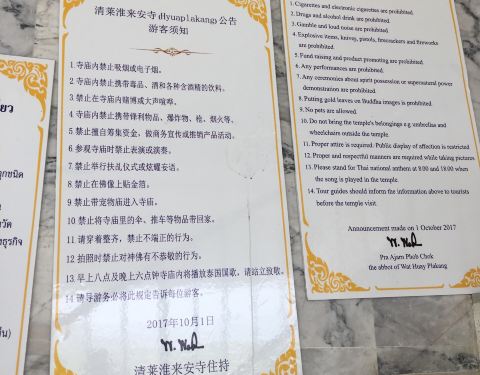 清莱淮来安寺(Hyuaplakang)公告
游客须知
1.寺庙内禁止吸烟或电子烟。
2.寺庙内禁止携带毒品、酒和各种含酒精的饮料。
3.禁止在寺庙内赌博或大声喧哗。
4.寺庙内禁止携带锋利物品、爆炸物、枪、烟火等。
5.禁止擅自筹集资金,做商务宣传或推销产品活动。
6.参观寺庙时禁止表演或演奏。
7.禁止举行扶乱仪式或炫耀安语。
8.禁止在佛像上贴金箔。
9.禁止带宠物庙进入寺庙。
10.禁止将寺庙里的伞、推车等物品带回家。
11.请穿着整齐,禁止不端正的行为。
12.拍照时禁止对神佛有不恭敬的行为。
13.早上八点及晚上六点钟寺庙内将播放泰国国歌,请站立致敬。
14.请导游务必将此规定告诉每位游客。
2017年10月1日
清莱淮来安寺住持
1.Cigarettes and electronic cigarettes are prohibited.
2.Drugs and alcohol drink are prohibited.
3.Gamble and loud noise are prohibited
4.Explosive items, knives, pistols, firecrackers and fireworks
are prohibited.
5.Fund raising and product promoting are prohibited.
6.Any performances are prohibited.
7.Any ceremonies about spirit possession or supernatural power
demonstration are prohibited.
8.Putting gold leaves on Buddha images is prohibited.
9.No pets are allowed.
10.Do not bring the temple's belongings e.g. umbrellas and
wheelchairs outside the temple.
11.Proper attire is required. Public display of affection is restricted
12.Proper and respectful manners are required while taking pictures.
13.Please stand for Thai national anthem at 8.00 and 18.00 when
the song is played in the temple.
14.Tour guides should inform the information above to tourists
before the temple visit.
Announcement made on 1 October 2017
Pra Ajarn Phob Chok
the abbot of Wat Huay Plakang